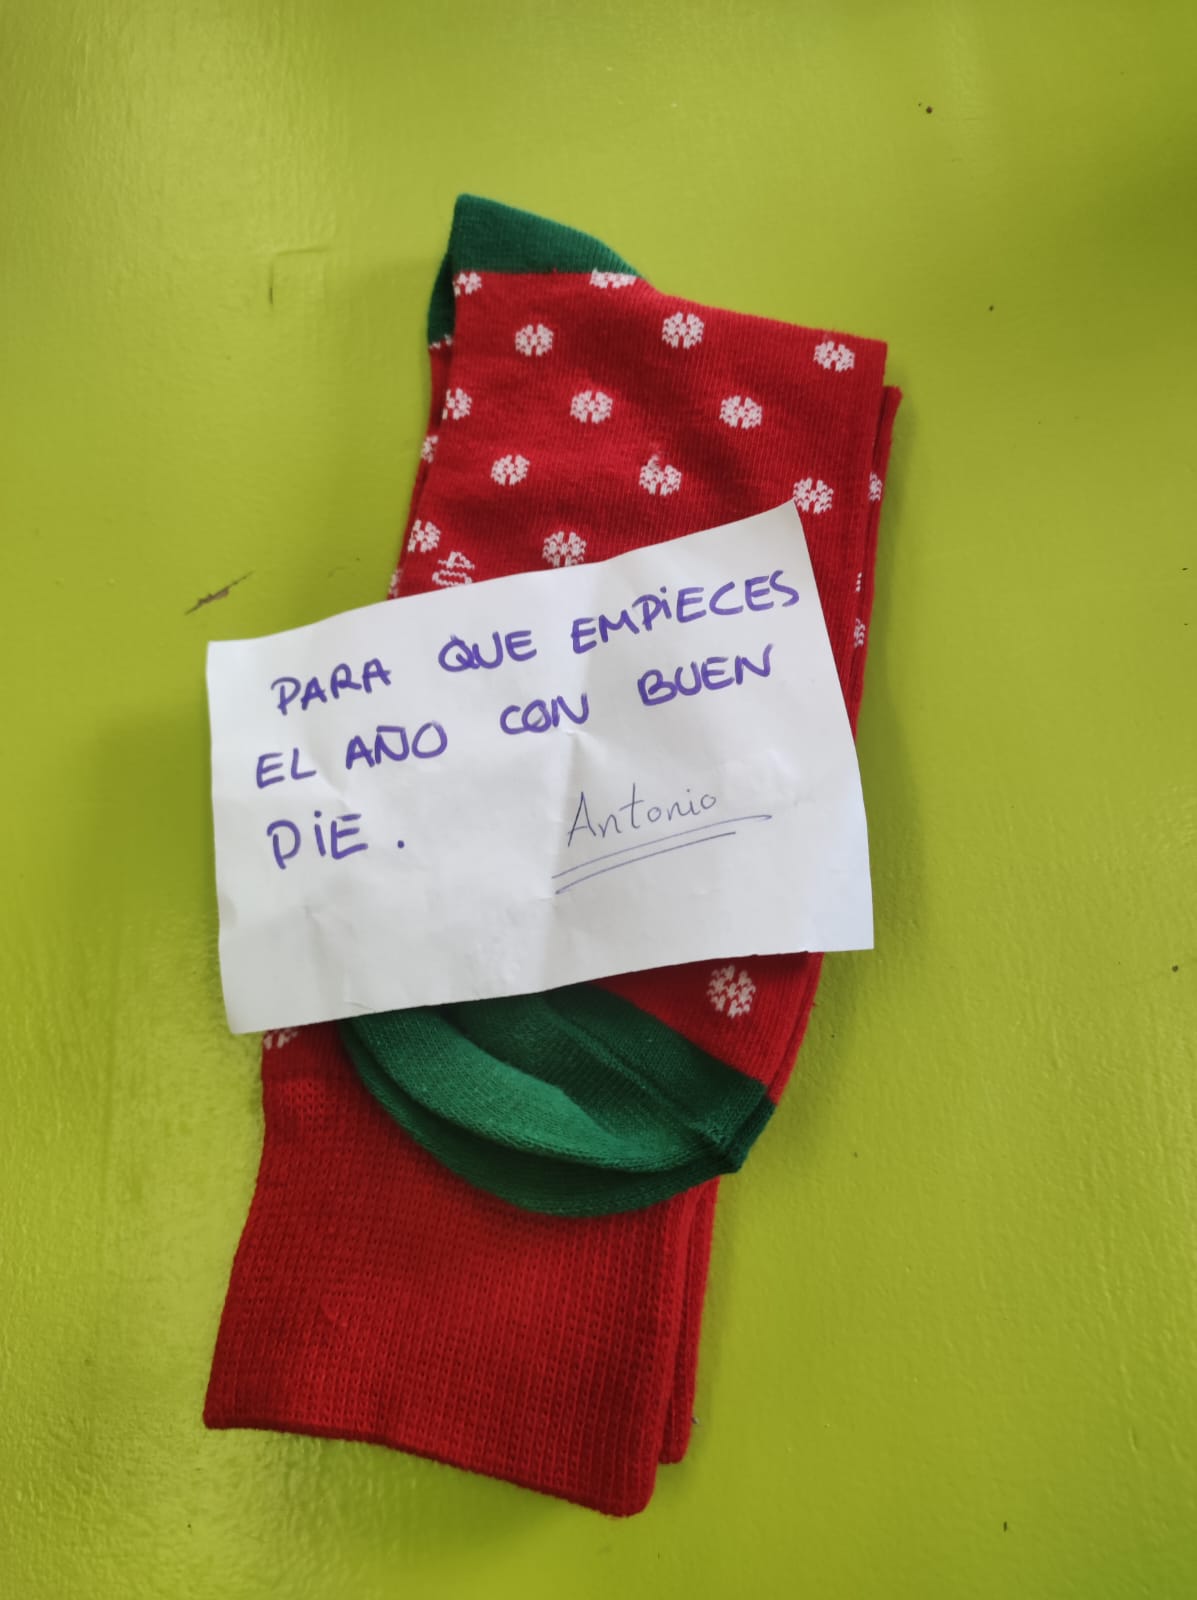 PARA QUE EMPIECES
EL AÑO CON BUEN
PIE.
Antonio